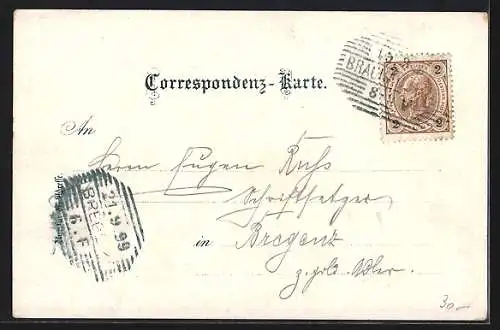 Correspondenz-Karte.
2 2
BRAU
8
2 2
An
Herrn Eugen Russ
Schriftsetzer
in Bregenz
z. gold. Adler.
21.9.99
BREG
6.F
30.-